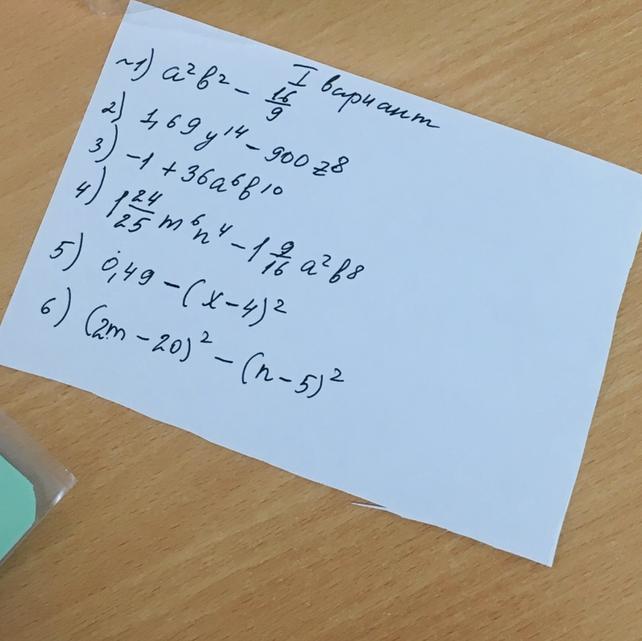 I вариант
~1) a²b² - 16/9
2) 1,69y¹⁴ - 900z⁸
3) -1 + 36a⁶b¹⁰
4) 1 24/25 m⁶n⁴ - 1 9/16 a²b⁸
5) 0,49 - (x-4)²
6) (2m - 20)² - (n-5)²